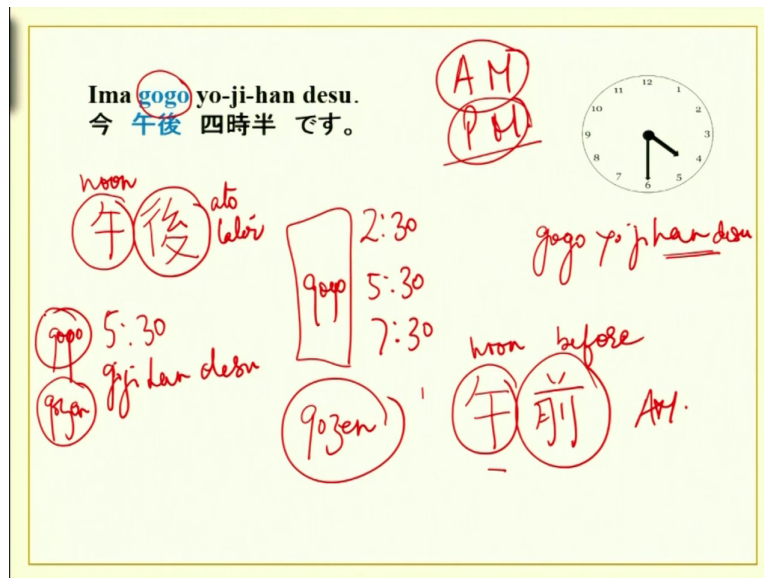 Ima gogo yo-ji-han desu.
今 午後 四時半 です。
AM
PM
12
1
2
3
4
5
6
7
8
9
10
11
noon
午後
ato
later
gogo
2:30
5:30
7:30
gogo yo ji han desu
gogo 5:30
gojihan desu
gozen
gozen
noon before
午前
AM.